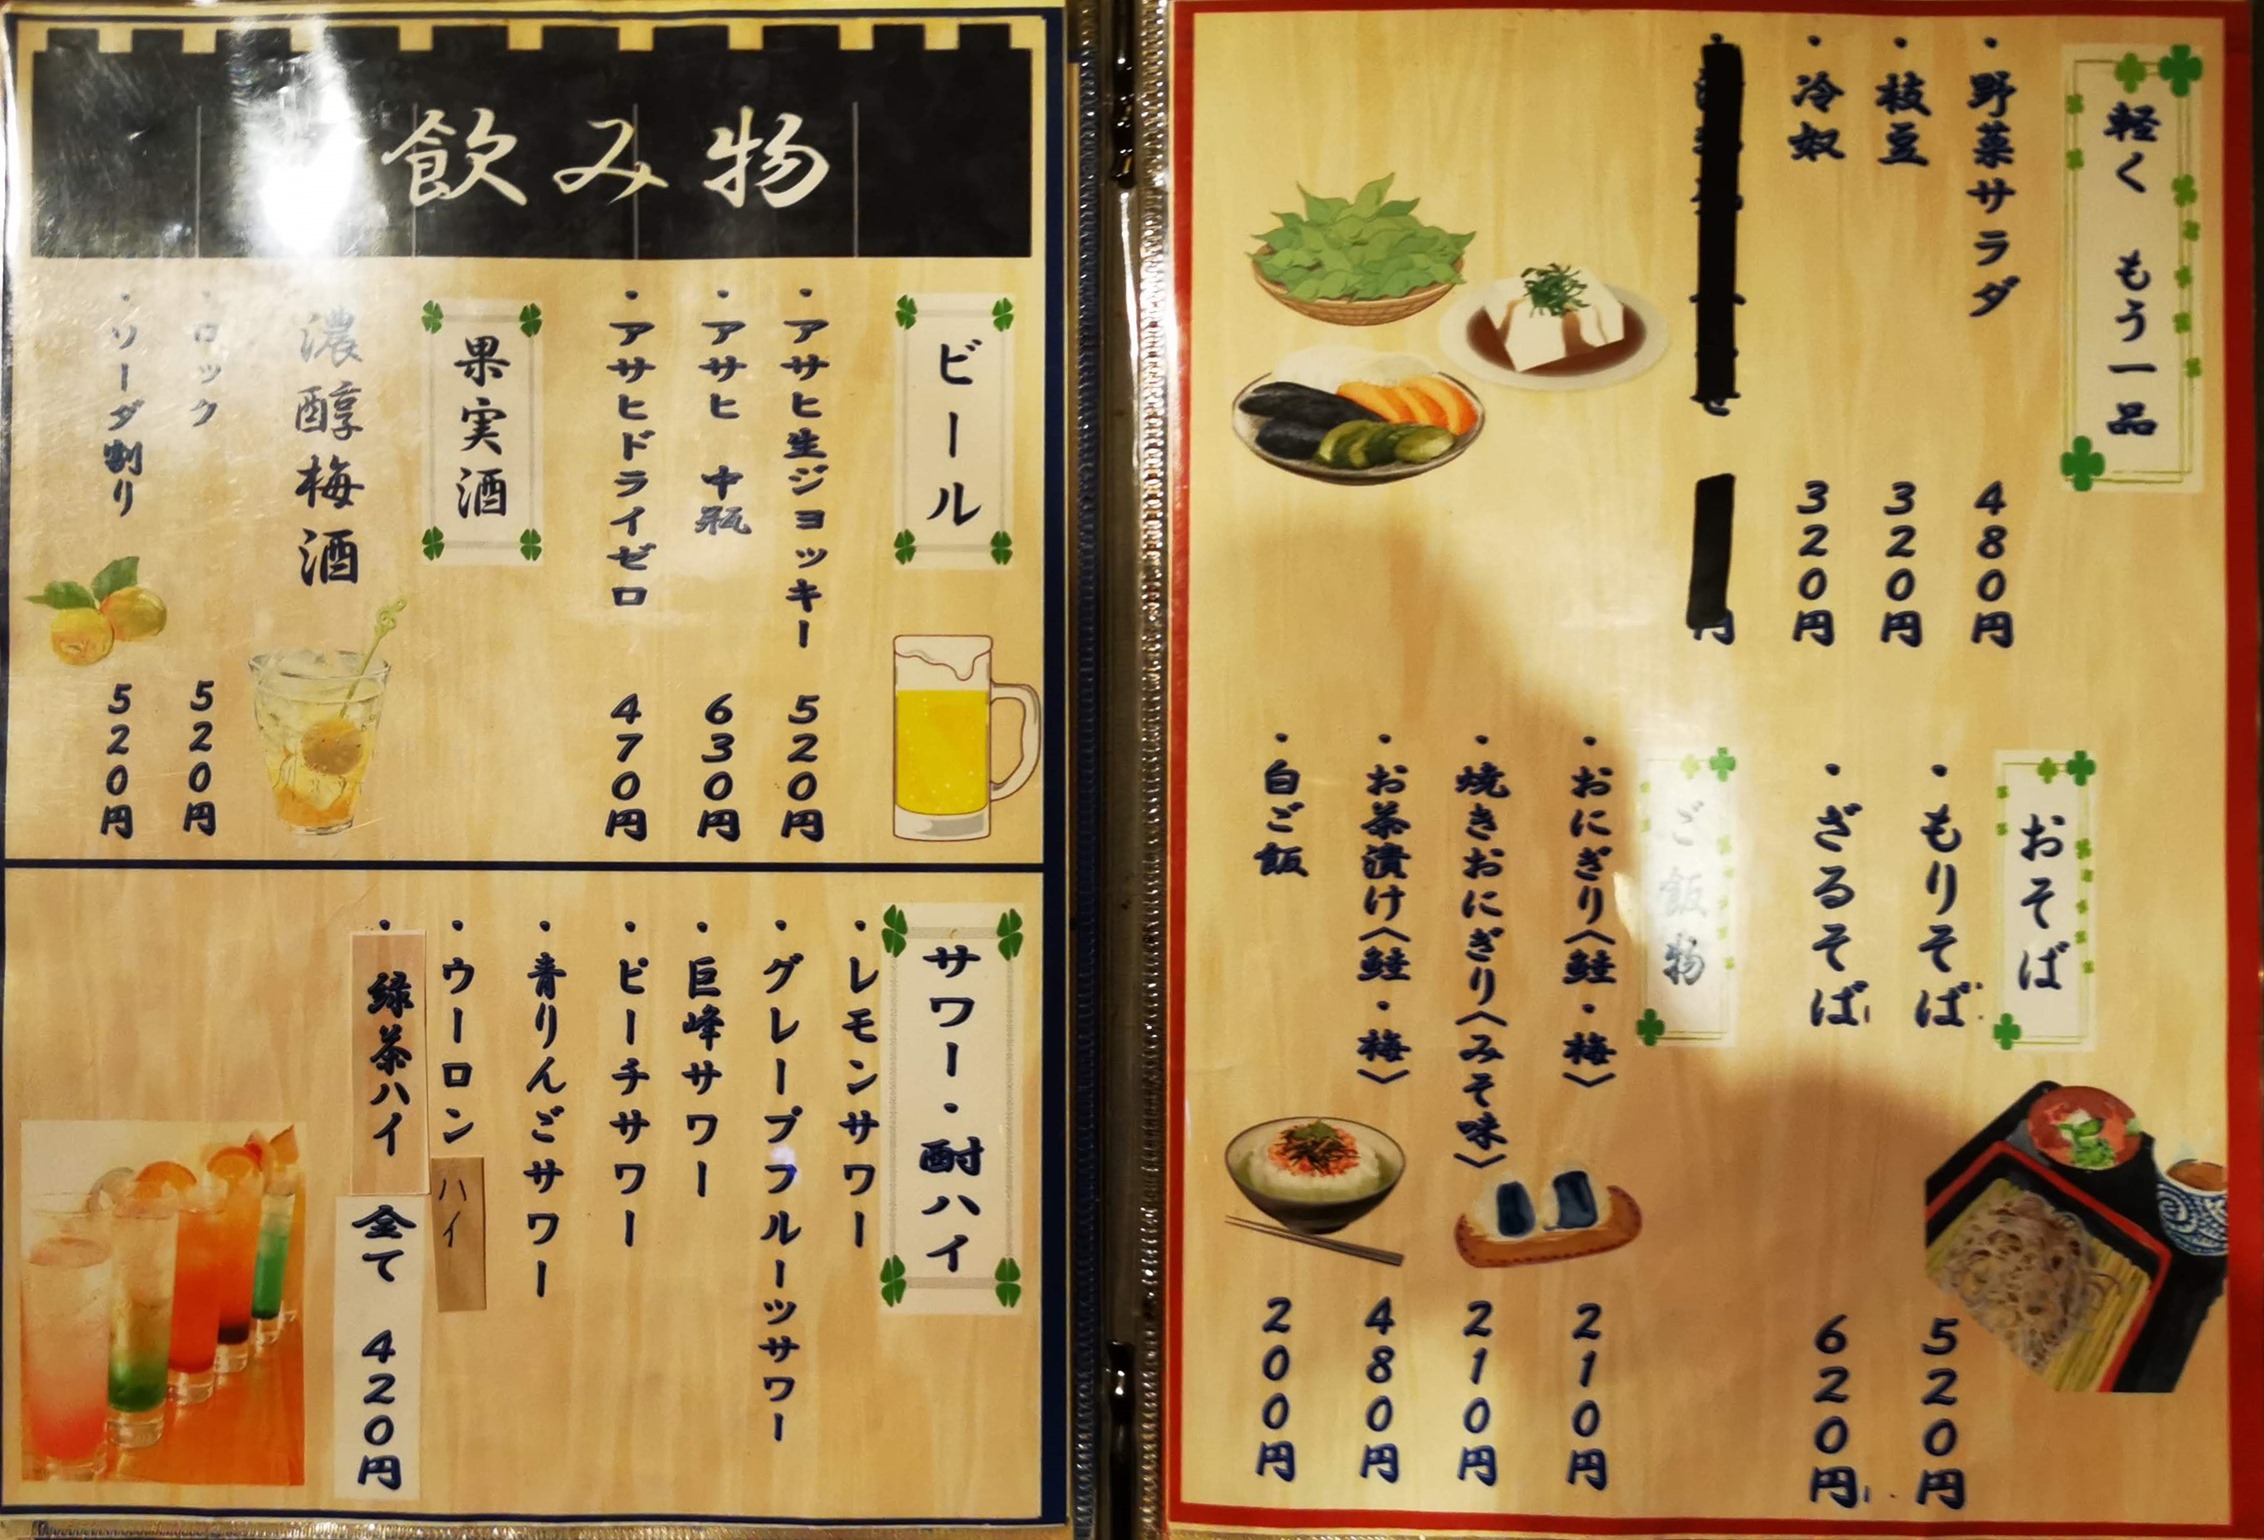 軽く もう一品
・野菜サラダ 480円
・枝豆 320円
・冷奴 320円
円
おそば
・もりそば 520円
・ざるそば 620円
ご飯物
・おにぎり〈鮭・梅〉 210円
・焼きおにぎり〈みそ味〉 210円
・お茶漬け〈鮭・梅〉 480円
・白ご飯 200円
飲み物
ビール
・アサヒ生ジョッキー 520円
・アサヒ 中瓶 630円
・アサヒドライゼロ 470円
果実酒
濃醇梅酒
・ロック 520円
・ソーダ割り 520円
サワー・酎ハイ
・レモンサワー
・グレープフルーツサワー
・巨峰サワー
・ピーチサワー
・青りんごサワー
・ウーロンハイ
・緑茶ハイ
全て 420円